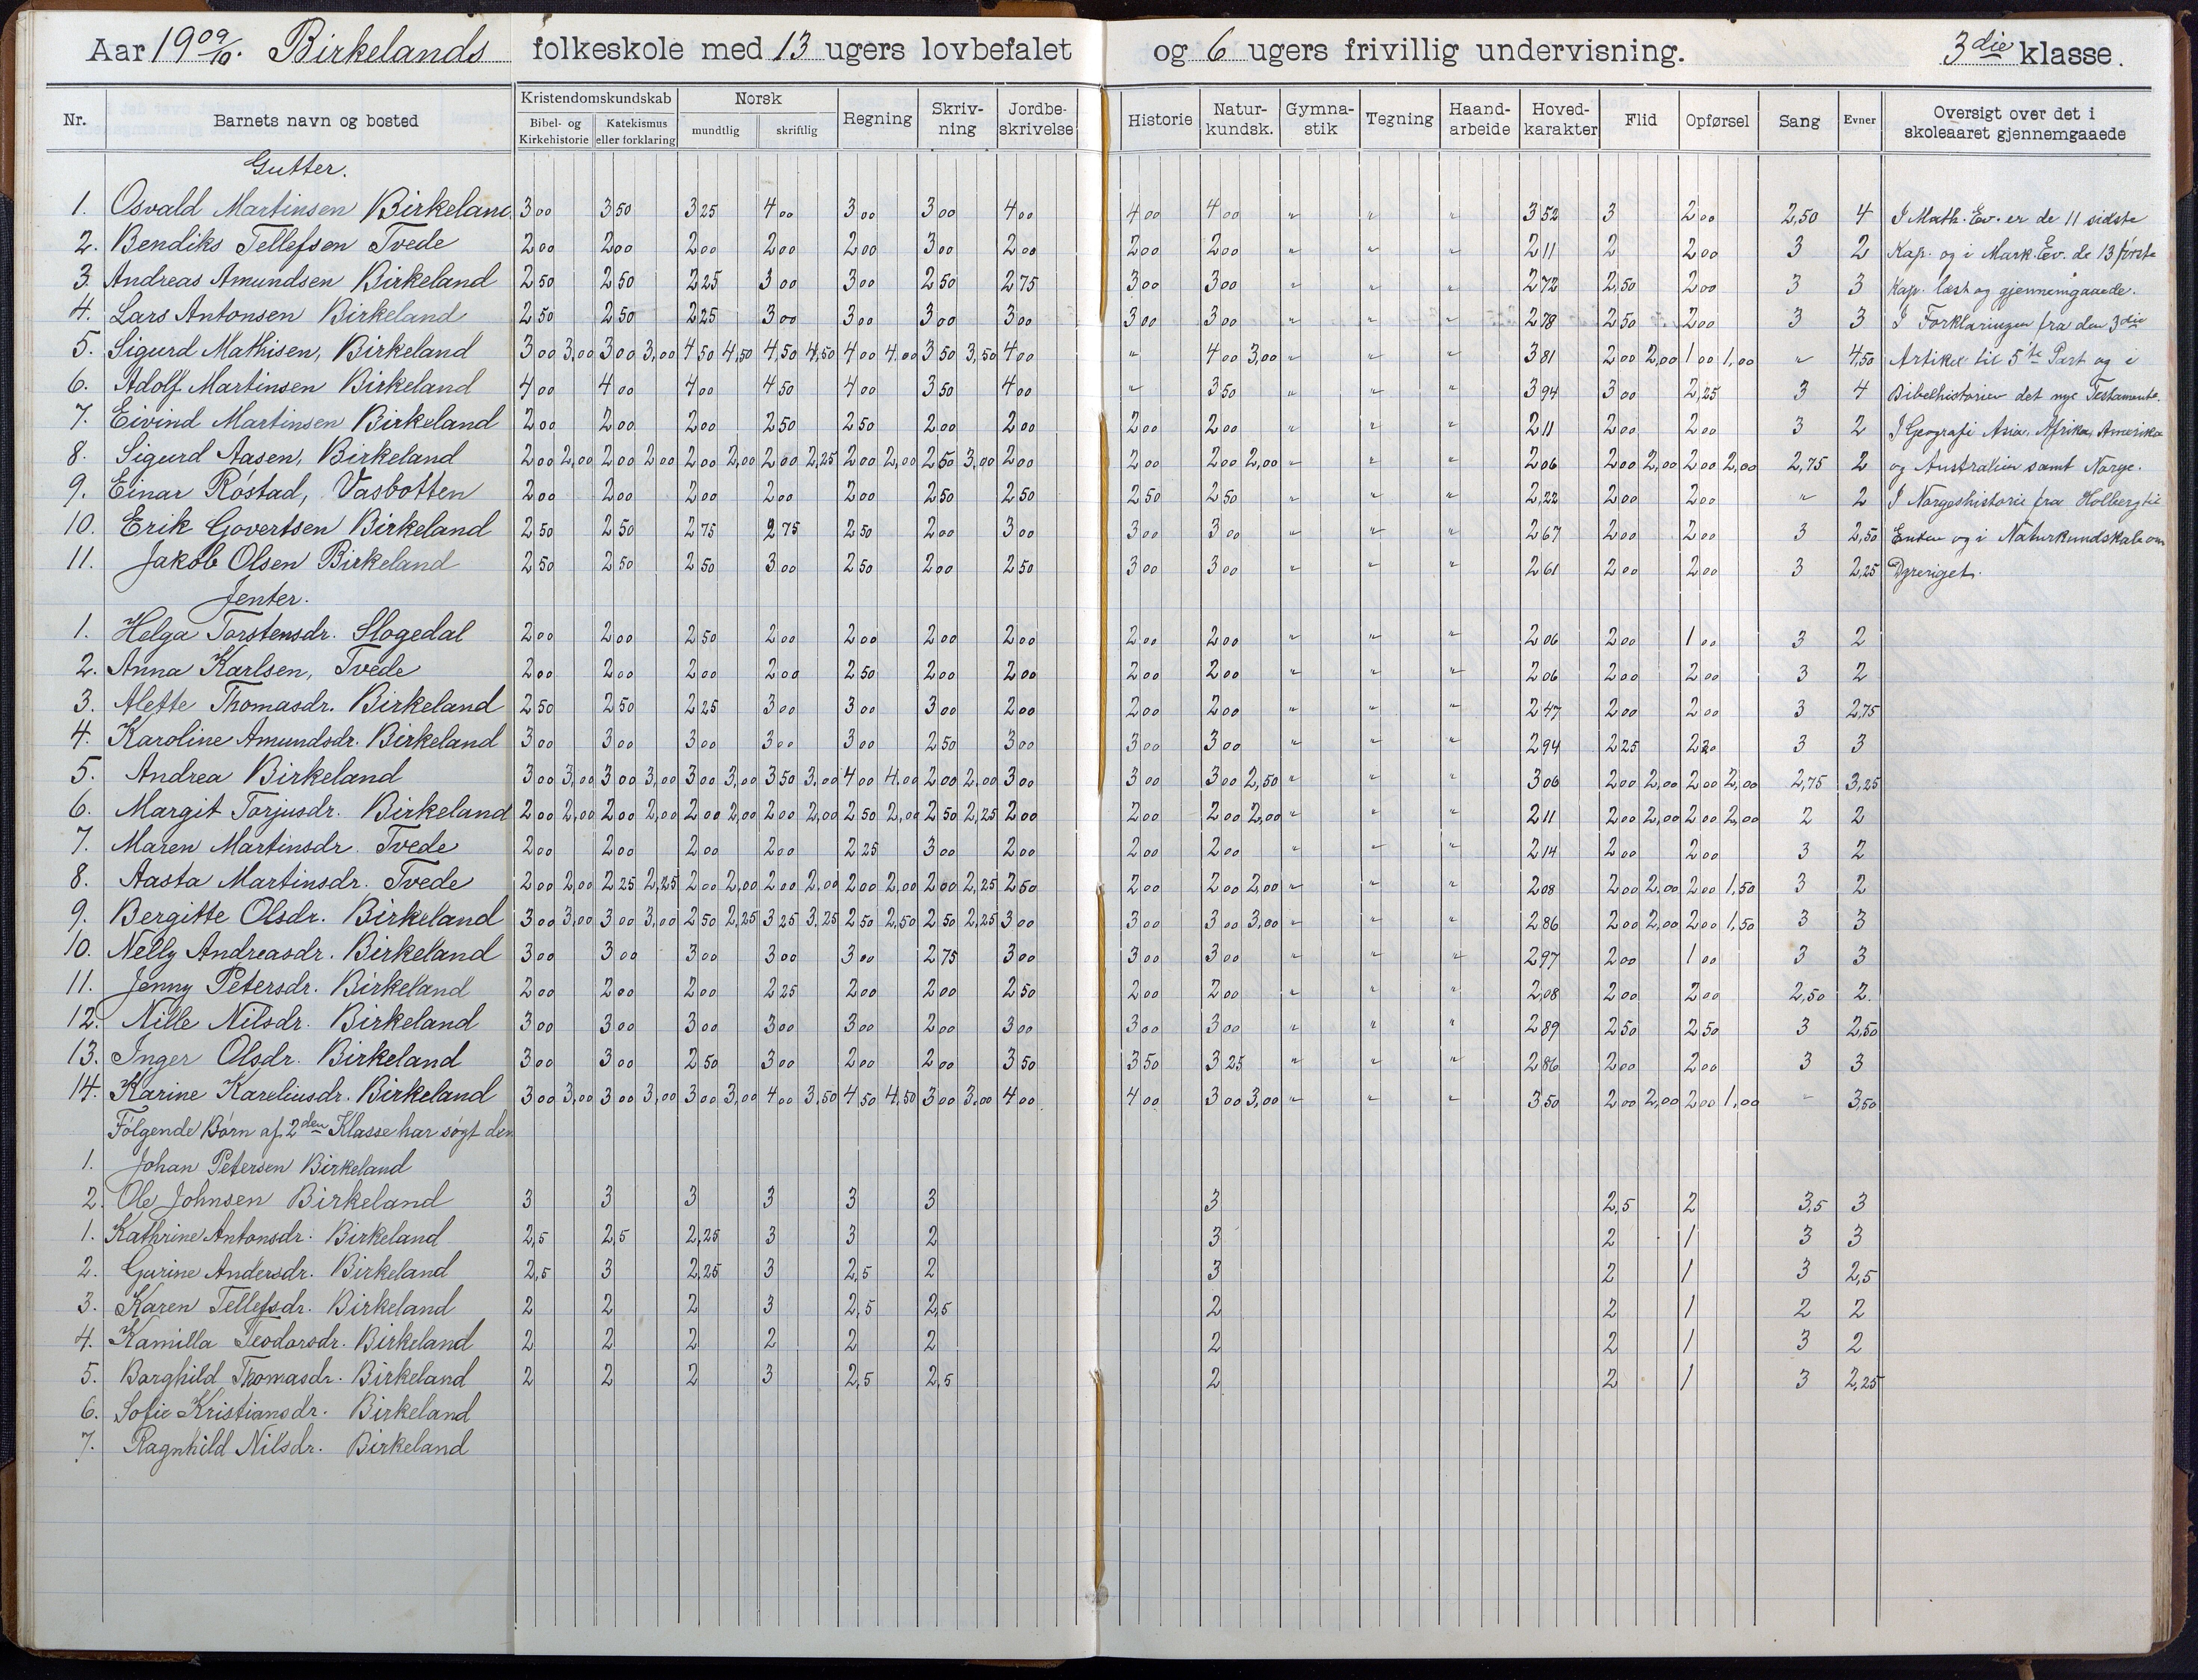 Aar 1909/10. Birkelands folkeskole med 13 ugers lovbefalet og 6 ugers frivillig undervisning. 3die klasse.
Nr. Barnets navn og bosted Kristendomskundskab Bibel- og Kirkehistorie Katekismus eller forklaring Norsk mundtlig skriftlig Regning Skriv-ning Jordbe-skrivelse Historie Natur-kundsk. Gymna-stik Tegning Haand-arbeide Hoved-karakter Flid Opførsel Sang Evner Oversigt over det i skoleaaret gjennemgaaede
Gutter.
1. Osvald Martinsen Birkeland 3 00 3 50 3 25 4 00 3 00 3 00 4 00 4 00 4 00 " " " 3 52 3 2 00 2,50 4 I Math. Ev. er de 11 sidste
2. Bendiks Tellefsen Tvede 2 00 2 00 2 00 2 00 2 00 3 00 2 00 2 00 2 00 " " " 2 11 2 2 00 3 2 Kap. og i Mark. Ev. de 13 første
3. Andreas Amundsen Birkeland 2 50 2 50 2 25 3 00 3 00 2 50 2 75 3 00 3 00 " " " 2 72 2,50 2 00 3 3 Kap. læst og gjennemgaaede.
4. Lars Antonsen Birkeland 2 50 2 50 2 25 3 00 3 00 3 00 3 00 3 00 3 00 " " " 2 78 2 50 2 00 3 3 I Forklaringen fra den 3die
5. Sigurd Mathisen, Birkeland 3 00 3,00 3 00 3,00 4 50 4,50 4,50 4,50 4 00 4,00 3 50 3,50 4 00 " 4 00 3,00 " " " 3 81 2 00 2,00 1 00 1,00 " 4,50 Artikel til 5te Part og i
6. Adolf Martinsen Birkeland 4 00 4 00 4 00 4 50 4 00 3 50 4 00 " 3 50 " " " 3 94 3 00 2,25 3 4 Bibelhistorien det nye Testamente.
7. Eivind Martinsen Birkeland 2 00 2 00 2 00 2 50 2 50 2 00 2 00 2 00 2 00 " " " 2 11 2 00 2 00 3 2 I Geografi Asia, Afrika, Amerika
8. Sigurd Aasen, Birkeland 2 00 2,00 2 00 2 00 2 00 2,00 2 00 2,25 2 00 2,00 2 50 3,00 2 00 2 00 2 00 2,00 " " " 2 06 2 00 2,00 2 00 2,00 2,75 2 og Australien samt Norge.
9. Einar Röstad, Vasbotten 2 00 2 00 2 00 2 00 2 00 2 50 2 50 2 50 2 50 " " " 2,22 2 00 2 00 " 2 I Norgeshistorie fra Holberg til
10. Erik Govertsen Birkeland 2 50 2 50 2 75 2 75 2 50 2 00 3 00 3 00 3 00 " " " 2 67 2 00 2 00 3 2,50 Enden og i Naturkundskab om
11. Jakob Olsen Birkeland 2 50 2 50 2 50 3 00 2 50 2 00 2 50 3 00 3 00 " " " 2 61 2 00 2 00 3 2,25 Dyreriget.
Jenter.
1. Helga Torstensdr. Slogedal 2 00 2 00 2 50 2 00 2 00 2 00 2 00 2 00 2 00 " " " 2 06 2 00 1 00 3 2
2. Anna Karlsen, Tvede 2 00 2 00 2 00 2 00 2 50 2 00 2 00 2 00 2 00 " " " 2 06 2 00 2 00 3 2
3. Alette Thomasdr. Birkeland 2 50 2 50 2 25 3 00 3 00 3 00 2 00 2 00 2 00 " " " 2 47 2 00 2 00 3 2,75
4. Karoline Amundsdr. Birkeland 3 00 3 00 3 00 3 00 3 00 2 50 3 00 3 00 3 00 " " " 2 94 2 25 2 20 3 3
5. Andrea Birkeland 3 00 3,00 3 00 3,00 3 00 3,00 3 50 3,00 4 00 4,00 2 00 2,00 3 00 3 00 3 00 2,50 " " " 3 06 2 00 2,00 2 00 2,00 2,75 3,25
6. Margit Torjusdr. Birkeland 2 00 2,00 2 00 2,00 2 00 2,00 2 00 2,00 2 50 2,00 2 50 2,25 2 00 2 00 2 00 2,00 " " " 2 11 2 00 2,00 2 00 2,00 2 2
7. Maren Martinsdr. Tvede 2 00 2 00 2 00 2 00 2 25 3 00 2 00 2 00 2 00 " " " 2 14 2 00 2 00 3 2
8. Aasta Martinsdr. Tvede 2 00 2,00 2 25 2,25 2 00 2,00 2 00 2,00 2 00 2,00 2 00 2,25 2 50 2 00 2 00 2,00 " " " 2 08 2 00 2,00 2 00 1,50 3 2
9. Bergitte Olsdr. Birkeland 3 00 3,00 3 00 3,00 2 50 2,25 3 25 3,25 2 50 2,50 2 50 2,25 3 00 3 00 3 00 3,00 " " " 2 86 2 00 2,00 2 00 1,50 3 3
10. Nelly Andreasdr. Birkeland 3 00 3 00 3 00 3 00 3 00 2 75 3 00 3 00 3 00 " " " 2 97 2 00 1 00 3 3
11. Jenny Petersdr. Birkeland 2 00 2 00 2 00 2 25 2 00 2 00 2 50 2 00 2 00 " " " 2,08 2 00 2 00 2,50 2.
12. Nille Nilsdr. Birkeland 3 00 3 00 3 00 3 00 3 00 2 00 3 00 3 00 3 00 " " " 2 89 2 50 2 50 3 2,50
13. Inger Olsdr. Birkeland 3 00 3 00 2 50 3 00 2 00 2 00 3 50 3 50 3 25 " " " 2 86 2 00 2 00 3 3
14. Karine Kareliusdr. Birkeland 3 00 3,00 3 00 3,00 3 00 3,00 4 00 3,50 4 50 4,50 3 00 3,00 4 00 4 00 3 00 3,00 " " " 3 50 2 00 2,00 2 00 1,00 " 3,50
Følgende Børn af 2den Klasse har søgt den
1. Johan Petersen Birkeland
2. Ole Johnsen Birkeland 3 3 3 3 3 3 3 2,5 2 3,5 3
1. Kathrine Antonsdr. Birkeland 2,5 2,5 2,25 3 3 2 3 2 1 3 3
2. Gurine Andersdr. Birkeland 2,5 3 2,25 3 2,5 2 3 2 1 3 2,5
3. Karen Tellefsdr. Birkeland 2 2 2 3 2,5 2,5 2 2 1 2 2
4. Kamilla Teodorsdr. Birkeland 2 2 2 2 2 2 2 2 1 3 2
5. Borghild Thomasdr. Birkeland 2 2 2 3 2,5 2,5 2 2 1 3 2,25
6. Sofie Kristiansdr. Birkeland
7. Ragnhild Nilsdr. Birkeland